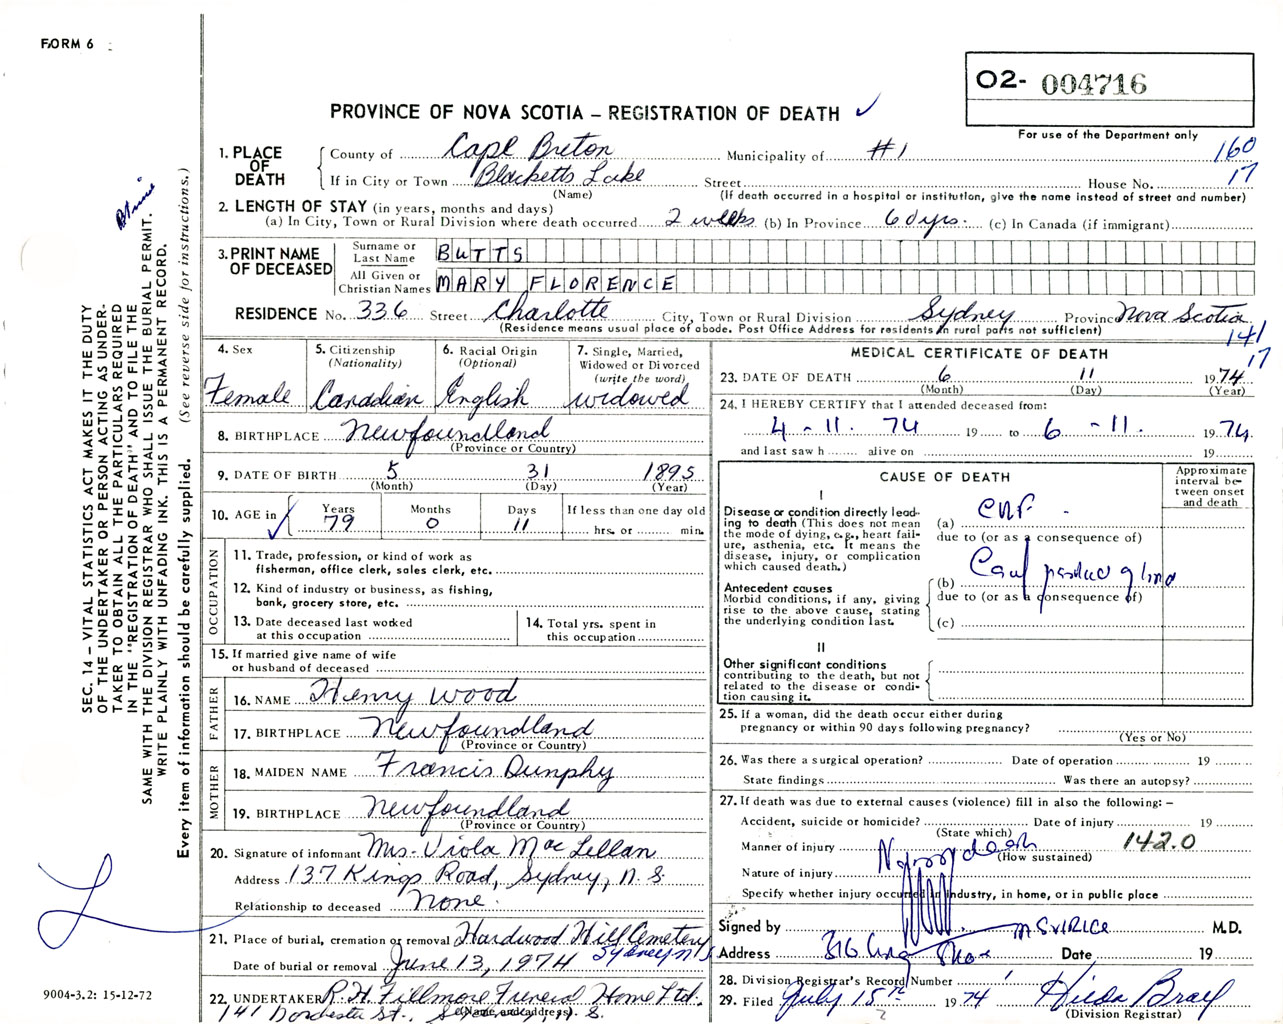 FORM 6
O2- 004716
PROVINCE OF NOVA SCOTIA – REGISTRATION OF DEATH ✓
For use of the Department only
1. PLACE OF DEATH
County of Cape Breton Municipality of #1 160
If in City or Town Blacketts Lake Street House No. 17
(Name) (If death occurred in a hospital or institution, give the name instead of street and number)
2. LENGTH OF STAY (in years, months and days)
(a) In City, Town or Rural Division where death occurred 2 weeks (b) In Province 60 yrs. (c) In Canada (if immigrant)
3. PRINT NAME OF DECEASED
Surname or Last Name BUTTS
All Given or Christian Names MARY FLORENCE
RESIDENCE No. 336 Street Charlotte City, Town or Rural Division Sydney Province Nova Scotia
(Residence means usual place of abode. Post Office Address for residents in rural parts not sufficient)
141
17
4. Sex
Female
5. Citizenship
(Nationality)
Canadian
6. Racial Origin
(Optional)
English
7. Single, Married, Widowed or Divorced
(write the word)
widowed
8. BIRTHPLACE Newfoundland
(Province or Country)
9. DATE OF BIRTH 5 31 1895
(Month) (Day) (Year)
10. AGE in ✓
Years Months Days If less than one day old
79 0 11 hrs. or min.
OCCUPATION
11. Trade, profession, or kind of work as
fisherman, office clerk, sales clerk, etc.
12. Kind of industry or business, as fishing,
bank, grocery store, etc.
13. Date deceased last worked
at this occupation
14. Total yrs. spent in
this occupation
15. If married give name of wife
or husband of deceased
FATHER
16. NAME Henry Wood
17. BIRTHPLACE Newfoundland
(Province or Country)
MOTHER
18. MAIDEN NAME Francis Dunphy
19. BIRTHPLACE Newfoundland
(Province or Country)
20. Signature of informant Mrs. Viola MacLellan
Address 137 Kings Road, Sydney, N.S.
Relationship to deceased None.
21. Place of burial, cremation or removal Hardwood Hill Cemetery
Sydney N.S.
Date of burial or removal June 13, 1974
22. UNDERTAKER R.H. Fillmore Funeral Home Ltd.
(Name and address)
141 Dorchester St., Sydney, N.S.
MEDICAL CERTIFICATE OF DEATH
23. DATE OF DEATH 6 11 1974
(Month) (Day) (Year)
24. I HEREBY CERTIFY that I attended deceased from:
4 - 11. 74 19 to 6 - 11. 1974
and last saw h alive on 19
CAUSE OF DEATH
Approximate interval between onset and death
I
Disease or condition directly leading to death (This does not mean the mode of dying, e.g., heart failure, asthenia, etc. It means the disease, injury, or complication which caused death.)
(a)
due to (or as a consequence of)
Antecedent causes
Morbid conditions, if any, giving rise to the above cause, stating the underlying condition last.
(b)
due to (or as a consequence of)
(c)
II
Other significant conditions
contributing to the death, but not related to the disease or condition causing it.
25. If a woman, did the death occur either during
pregnancy or within 90 days following pregnancy?
(Yes or No)
26. Was there a surgical operation? Date of operation 19
State findings Was there an autopsy?
27. If death was due to external causes (violence) fill in also the following: –
Accident, suicide or homicide? Date of injury 19
(State which)
Manner of injury 142.0
(How sustained)
Nature of injury
Specify whether injury occurred in industry, in home, or in public place
Signed by M.D.
Address Date 19
28. Division Registrar's Record Number
29. Filed July 15th 1974 Hilda Brayl
(Division Registrar)
SEC. 14 – VITAL STATISTICS ACT MAKES IT THE DUTY
OF THE UNDERTAKER OR PERSON ACTING AS UNDER-
TAKER TO OBTAIN ALL THE PARTICULARS REQUIRED
IN THE "REGISTRATION OF DEATH" AND TO FILE THE
SAME WITH THE DIVISION REGISTRAR WHO SHALL ISSUE THE BURIAL PERMIT.
WRITE PLAINLY WITH UNFADING INK. THIS IS A PERMANENT RECORD.
Every item of information should be carefully supplied. (See reverse side for instructions.)
9004-3.2: 15-12-72